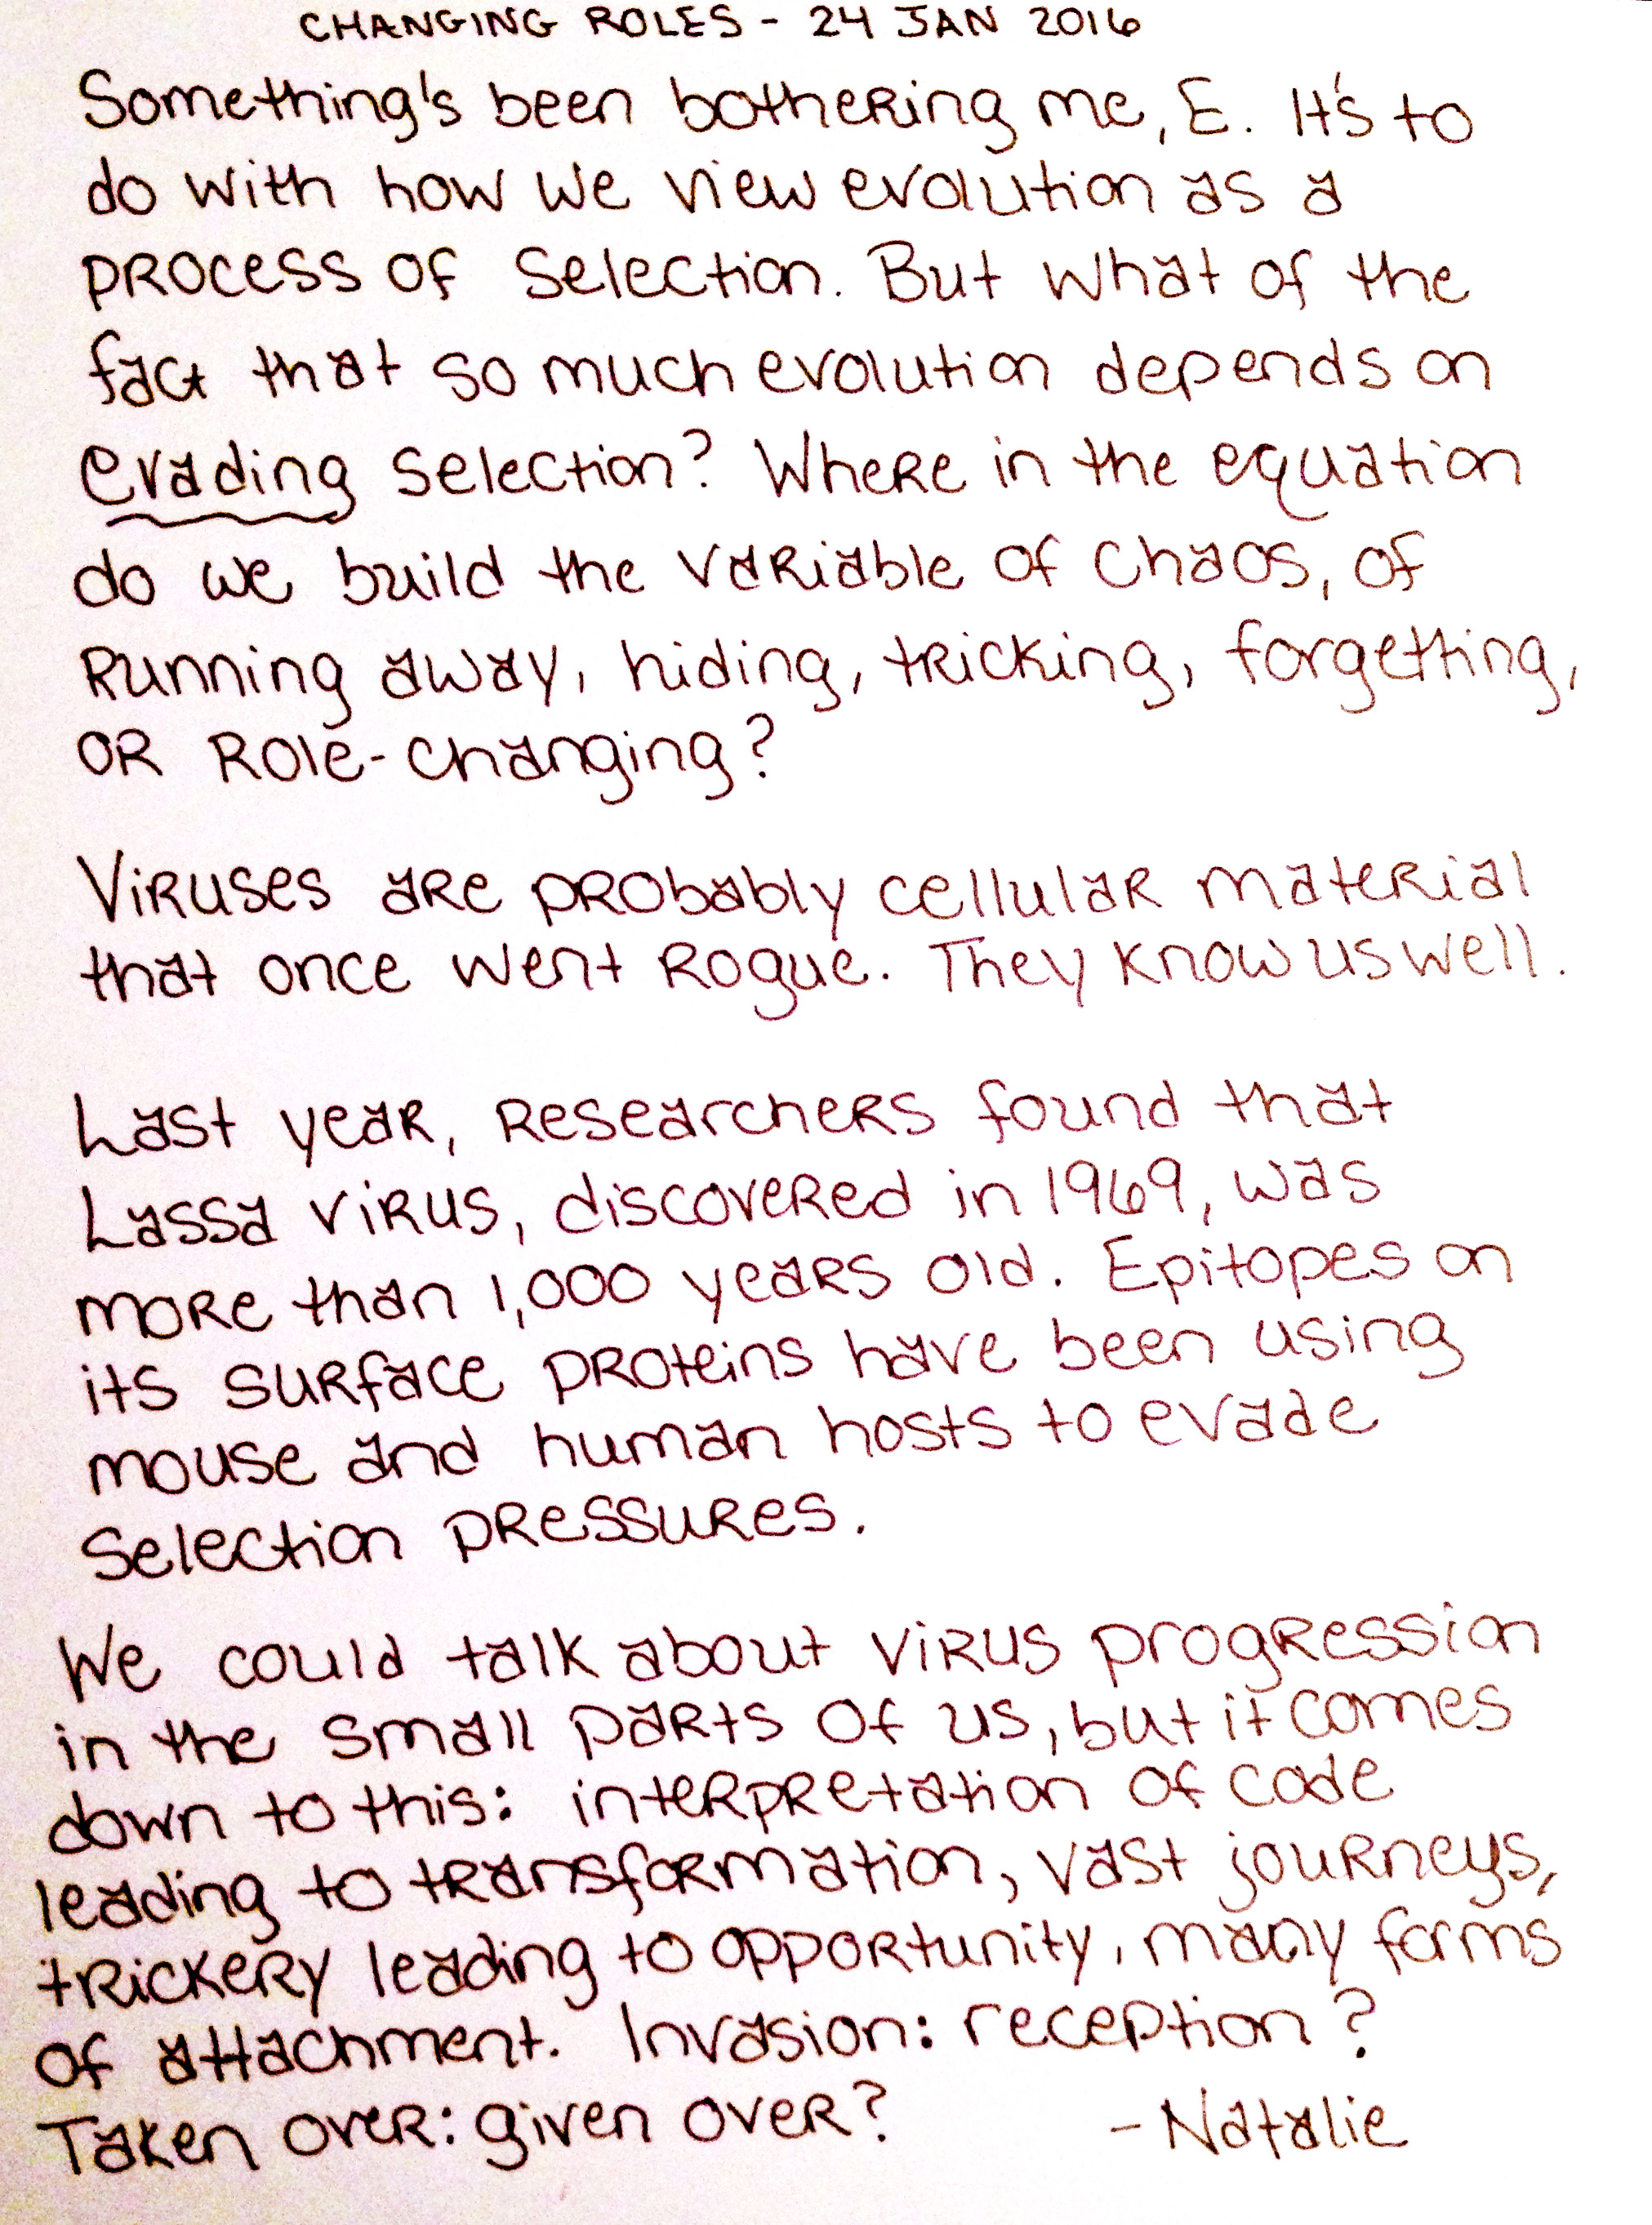 CHANGING ROLES - 24 JAN 2016
Something's been bothering me, E. It's to
do with how we view evolution as a
process of selection. But what of the
fact that so much evolution depends on
evading selection? Where in the equation
do we build the variable of chaos, of
running away, hiding, tricking, forgetting,
or role-changing?
Viruses are probably cellular material
that once went rogue. They know us well.
Last year, researchers found that
Lassa virus, discovered in 1969, was
more than 1,000 years old. Epitopes on
its surface proteins have been using
mouse and human hosts to evade
selection pressures.
We could talk about virus progression
in the small parts of us, but it comes
down to this: interpretation of code
leading to transformation, vast journeys,
trickery leading to opportunity, many forms
of attachment. Invasion: reception?
Taken over: given over?
- Natalie